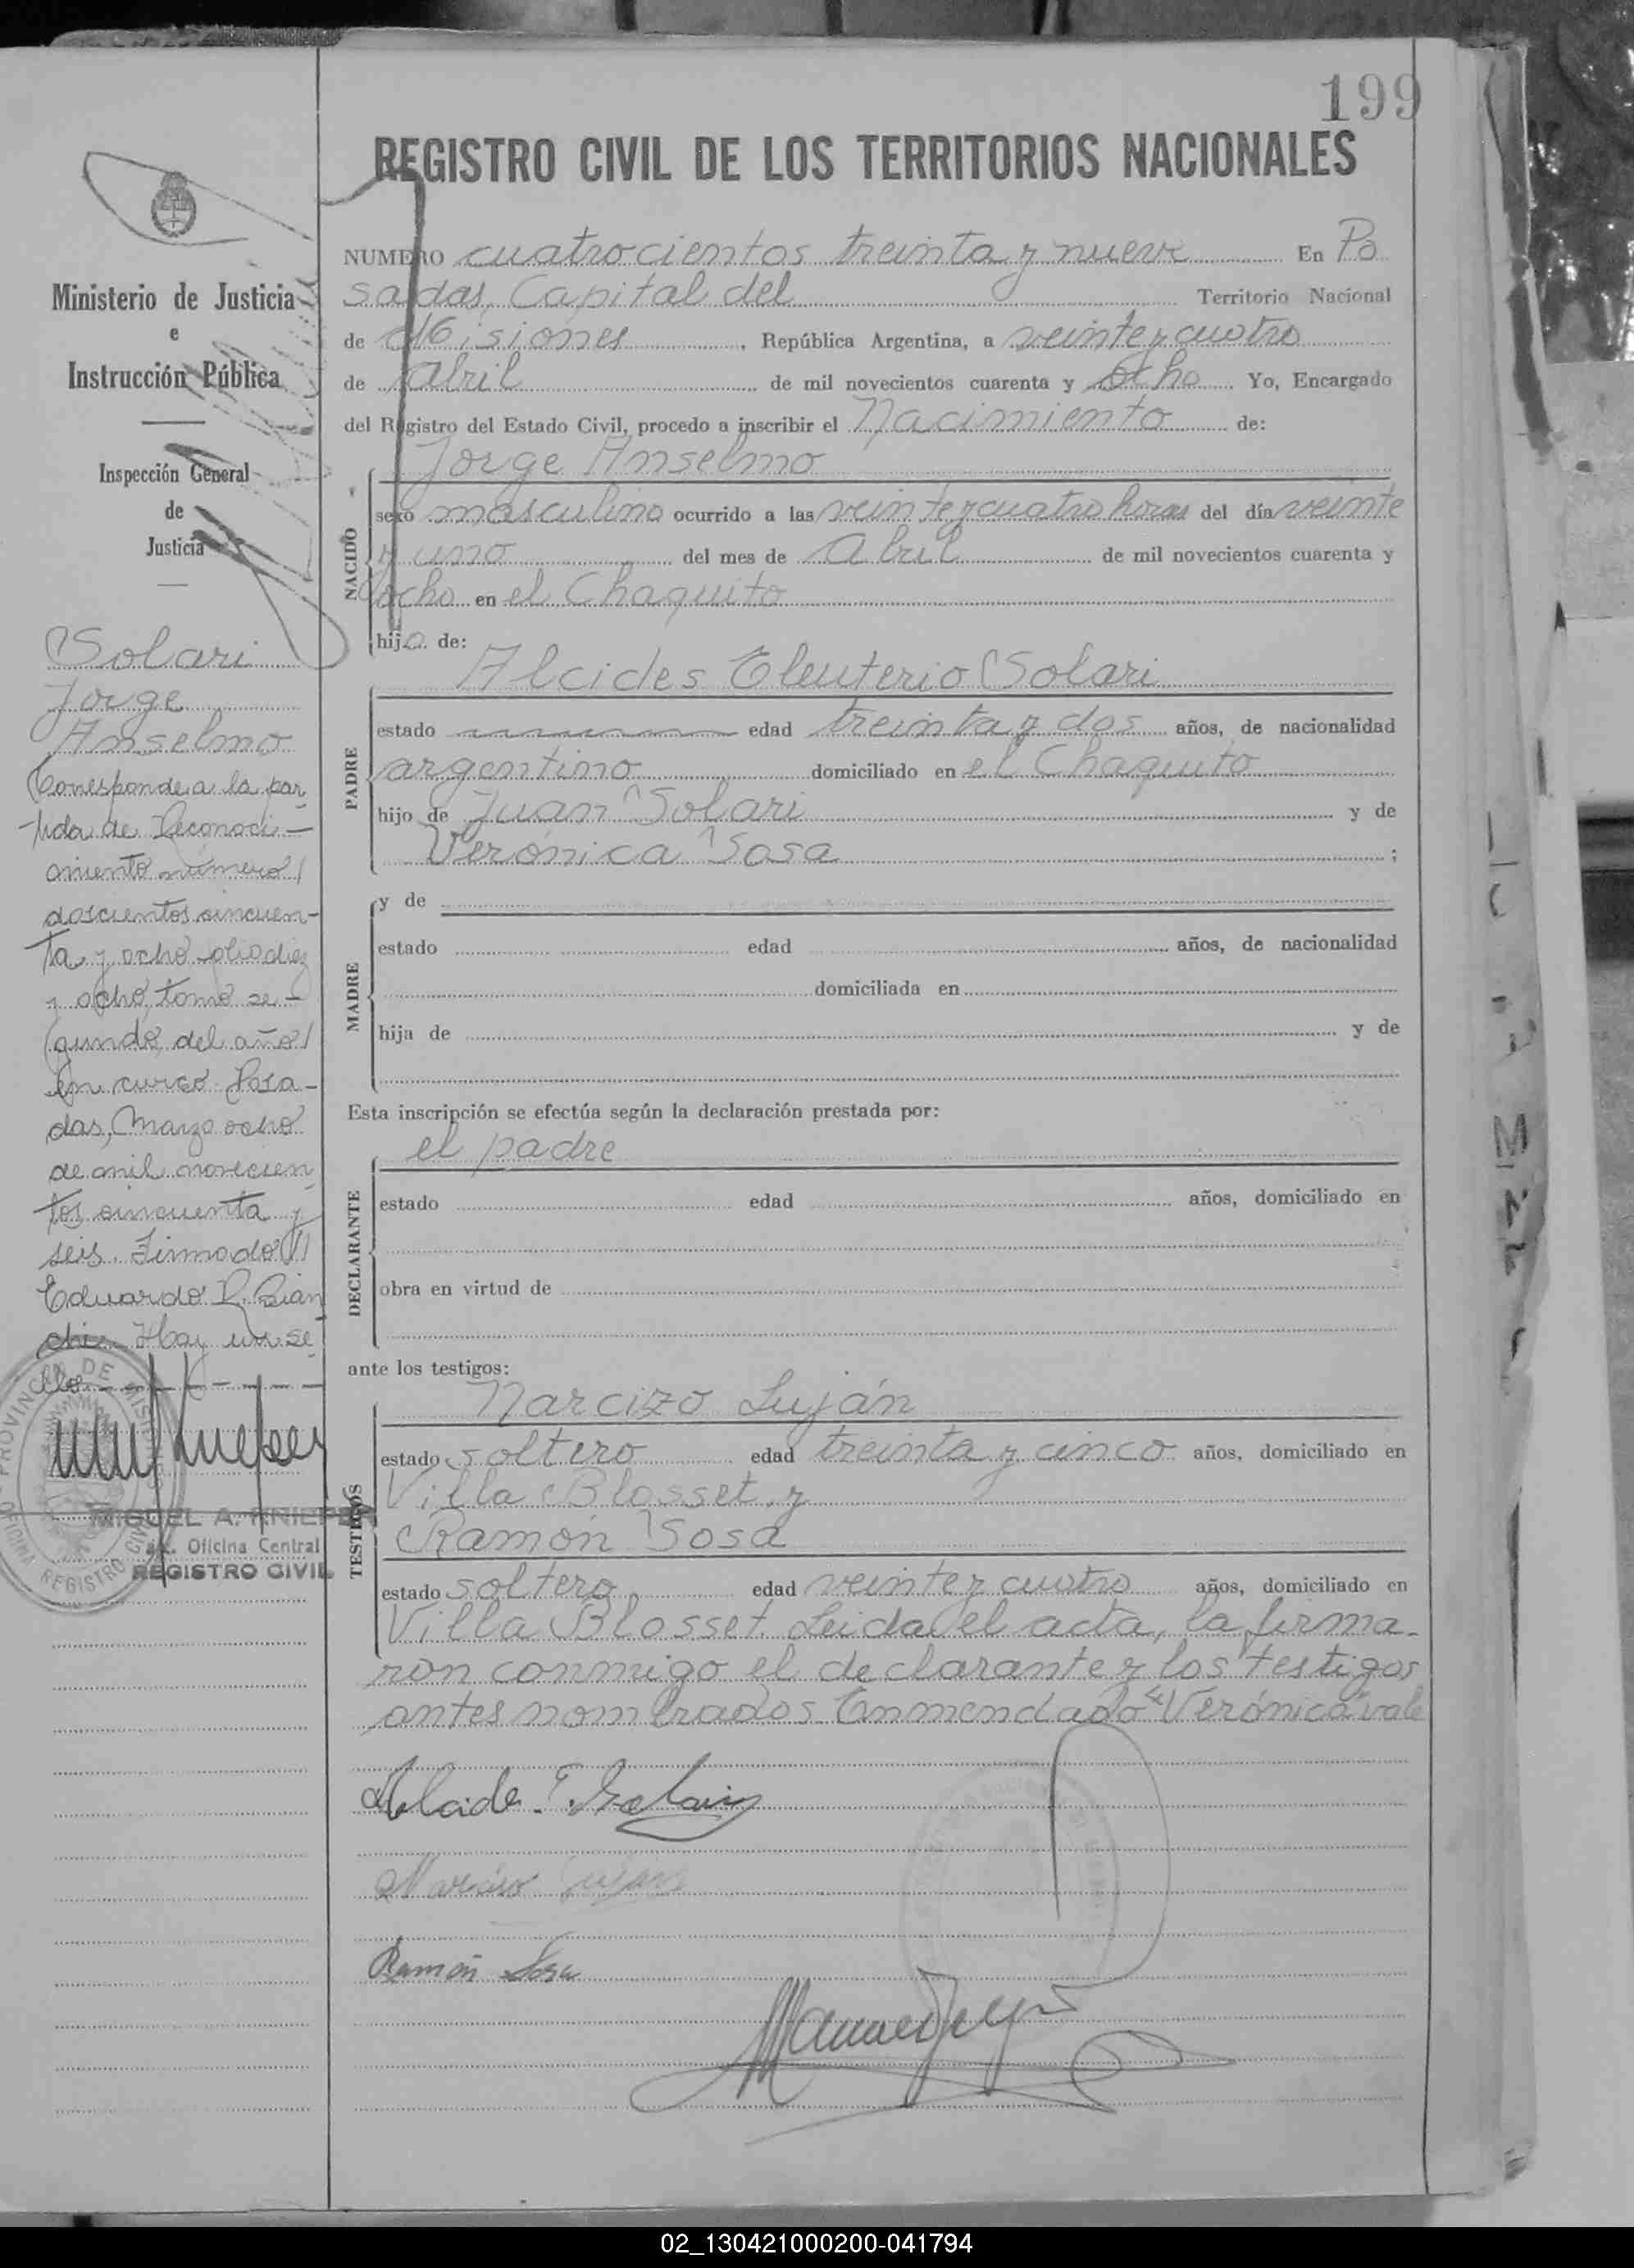 199
REGISTRO CIVIL DE LOS TERRITORIOS NACIONALES
NUMERO cuatrocientos treinta y nueve En Po
sadas, Capital del Territorio Nacional
de Misiones, República Argentina, a veinte y cuatro
de Abril de mil novecientos cuarenta y ocho Yo, Encargado
del Registro del Estado Civil, procedo a inscribir el Nacimiento de:
Jorge Anselmo
NACIDO
sexo masculino ocurrido a las veinte y cuatro horas del día veinte
y uno del mes de Abril de mil novecientos cuarenta y
ocho en el Chaquito
hijo de:
Alcides Eleuterio Solari
PADRE
estado edad treinta y dos años, de nacionalidad
argentino domiciliado en el Chaquito
hijo de Juan Solari y de
Verónica Sosa ;
MADRE
y de
estado edad años, de nacionalidad
domiciliada en
hija de y de
Esta inscripción se efectúa según la declaración prestada por:
el padre
DECLARANTE
estado edad años, domiciliado en
obra en virtud de
ante los testigos:
Narcizo Luján
TESTIGOS
estado soltero edad treinta y cinco años, domiciliado en
Villa Blosset, y
Ramón Sosa
estado soltero edad veinte y cuatro años, domiciliado en
Villa Blosset. Leida el acta, la firma-
ron conmigo el declarante y los testigos
antes nombrados. Enmendado "Verónica" vale
Alcide E. Solari
Narciso Luján
Ramón Sosa
Ministerio de Justicia
e
Instrucción Pública
Inspección General
de
Justicia
Solari
Jorge
Anselmo
Corresponde a la par
tida de Reconoci-
miento número
doscientos cincuen-
ta y ocho folio diez
y ocho, tomo se-
gundo, del año
en curso. Posa-
das, Marzo ocho
de mil novecien
tos cincuenta y
seis. Firmado
Eduardo R. Bian
chi. Hay un se
llo.
PROVINCIA DE MISIONES
OFICINA REGISTRO CIVIL
MIGUEL A. KNIEPER
Oficina Central
REGISTRO CIVIL
02_130421000200-041794